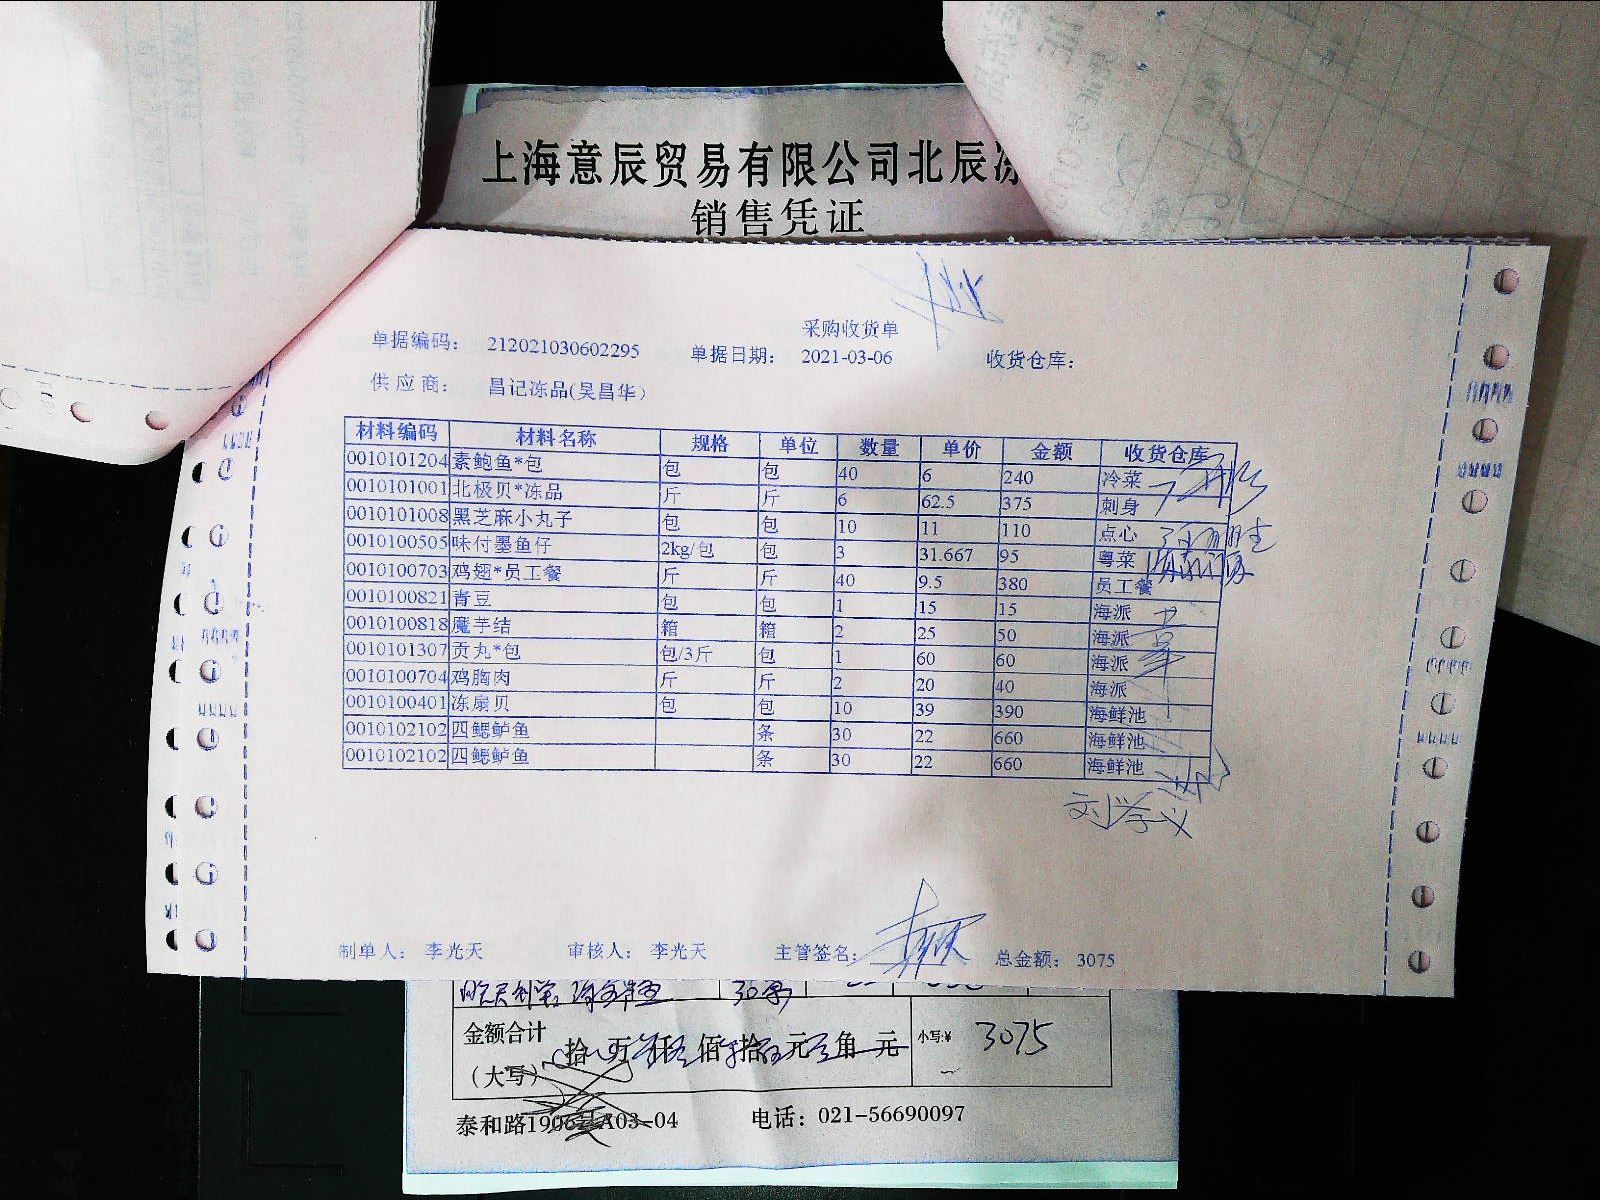 上海意辰贸易有限公司北辰冻
销售凭证
采购收货单
单据编码： 212021030602295 单据日期： 2021-03-06 收货仓库：
供应商： 昌记冻品(吴昌华)
材料编码 材料名称 规格 单位 数量 单价 金额 收货仓库
0010101204 素鲍鱼*包 包 包 40 6 240 冷菜
0010101001 北极贝*冻品 斤 斤 6 62.5 375 刺身
0010101008 黑芝麻小丸子 包 包 10 11 110 点心
0010100505 味付墨鱼仔 2kg/包 包 3 31.667 95 粤菜
0010100703 鸡翅*员工餐 斤 斤 40 9.5 380 员工餐
0010100821 青豆 包 包 1 15 15 海派
0010100818 魔芋结 箱 箱 2 25 50 海派
0010101307 贡丸*包 包/3斤 包 1 60 60 海派
0010100704 鸡胸肉 斤 斤 2 20 40 海派
0010100401 冻扇贝 包 包 10 39 390 海鲜池
0010102102 四鳃鲈鱼 条 30 22 660 海鲜池
0010102102 四鳃鲈鱼 条 30 22 660 海鲜池
刘学义
制单人： 李光天 审核人： 李光天 主管签名： 总金额： 3075
金额合计 拾 万 仟 佰 拾 元 角 元 小写:¥ 3075
（大写）
泰和路1906号A03-04 电话：021-56690097